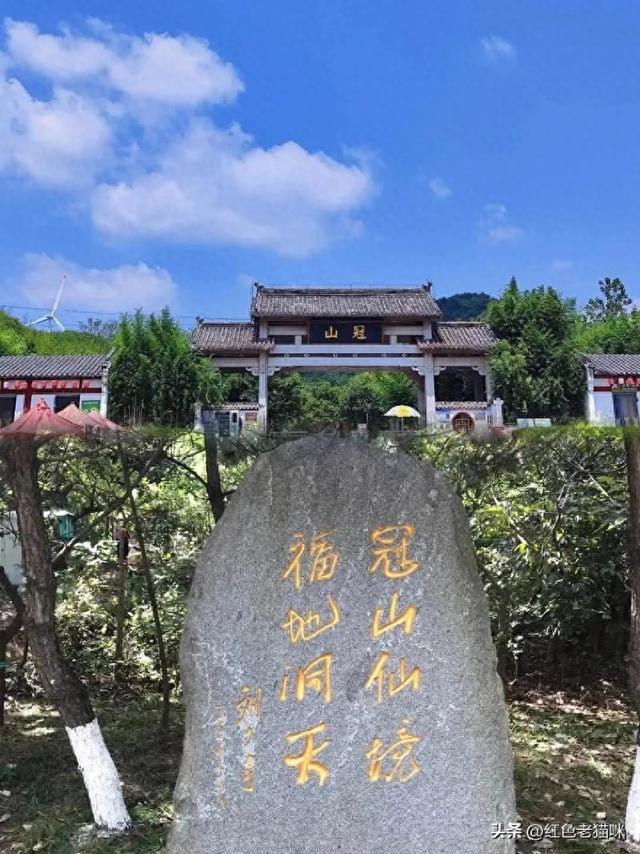 冠山
冠山仙境
福地洞天
头条 @红色老猫咪